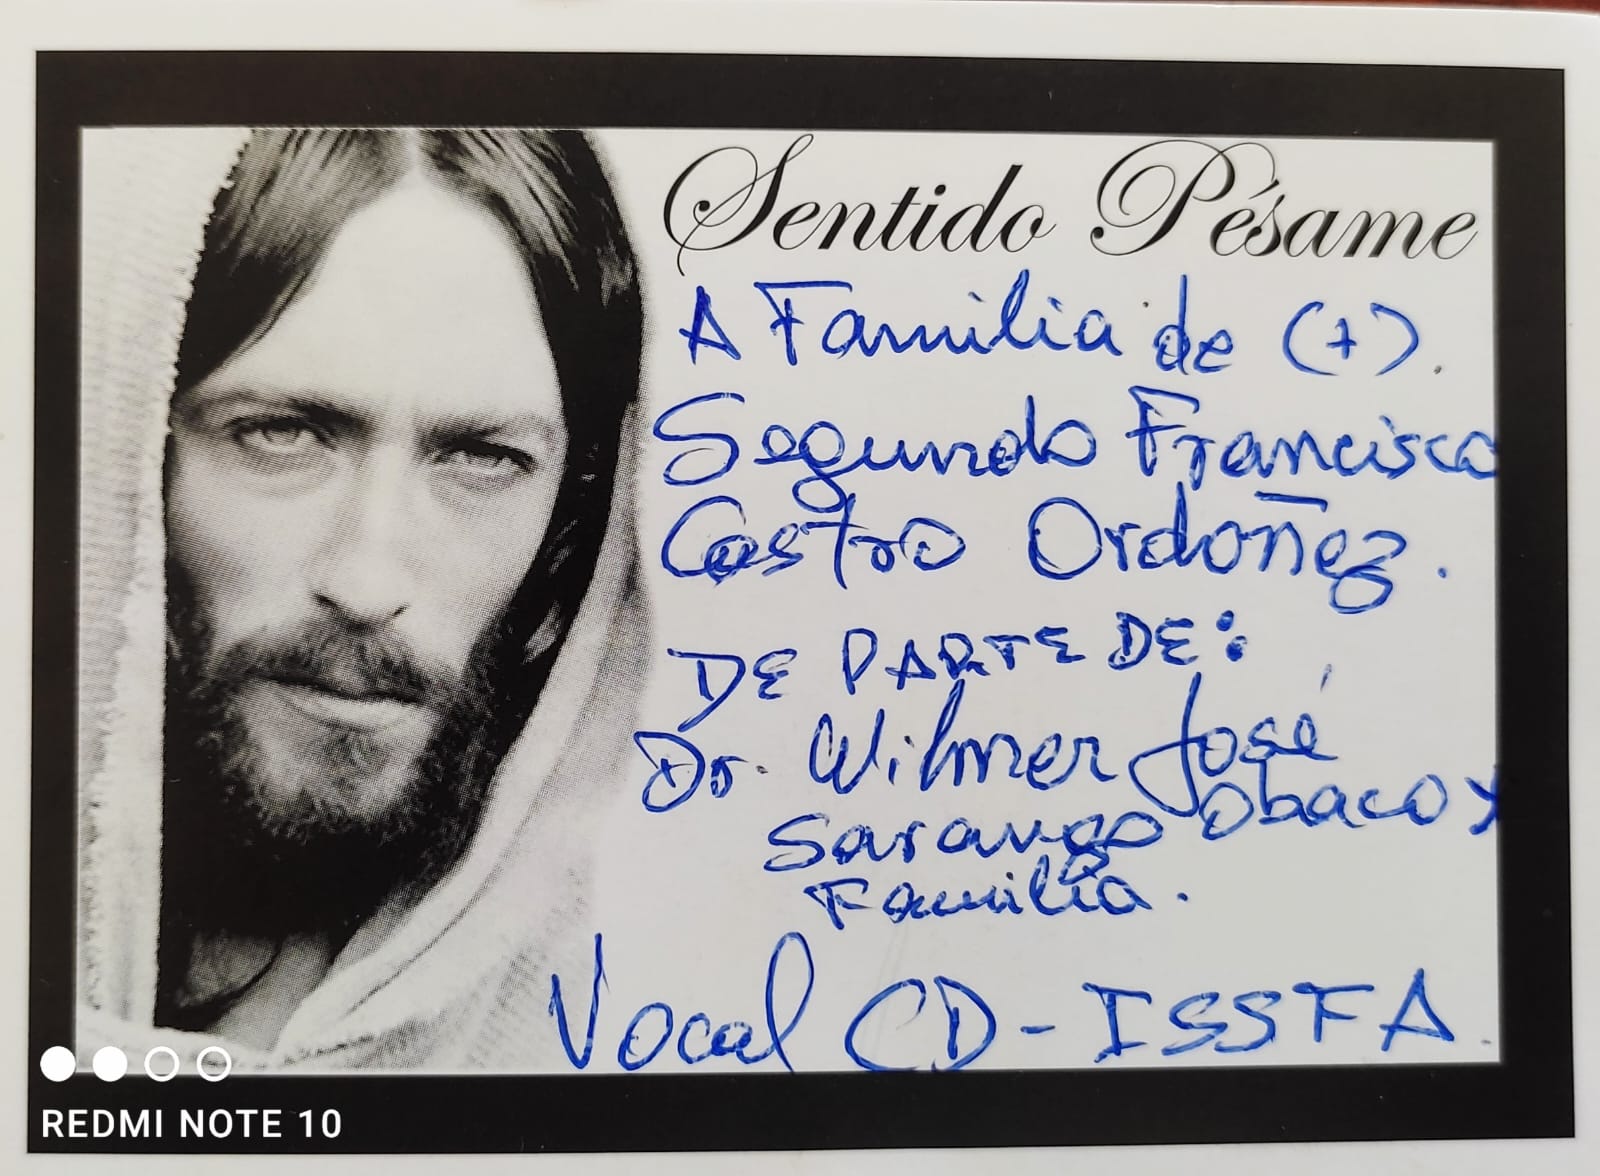 Sentido Pésame
A Familia de (+).
Segundo Francisco
Castro Ordoñez.
DE PARTE DE:
Dr. Wilmer José
Sarango Obaco y
Familia.
Vocal CD-ISSFA.
REDMI NOTE 10